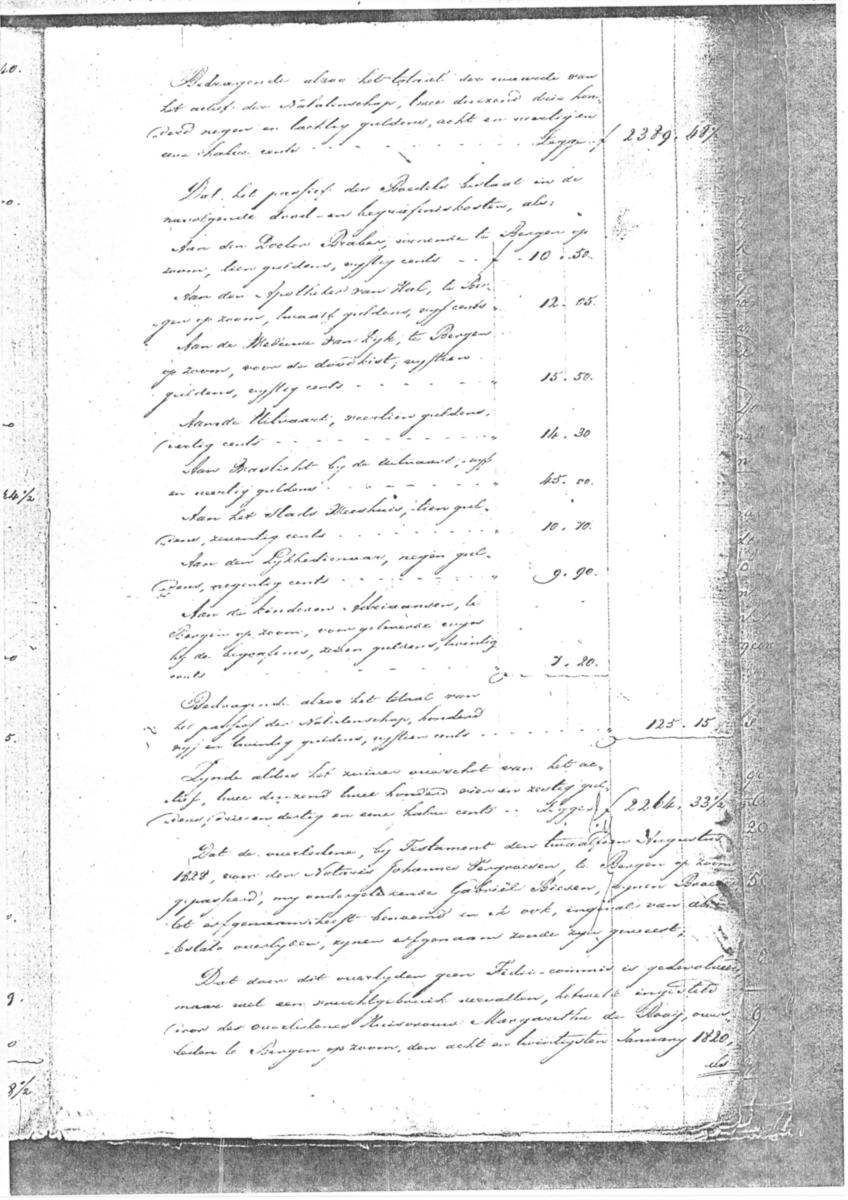 Bedragende alzoo het totaal der waarde van
het actief der Nalatenschap, twee duizend drie hon-
derd negen en tachtig guldens, acht en veertig en
eene halve cents - - - Zegge f 2389. 48½
Dat het passief des Boedels bestaat in de
navolgende dood- en begrafeniskosten, als:
Aan den Doctor Braber, wonende te Bergen op
zoom, tien guldens, vyftig cents - - f 10. 50.
Aan den Apotheker van Hal, te Ber-
gen op zoom, twaalf guldens, vyf cents " 12. 05.
Aan de Weduwe van Dyk, te Bergen
op zoom, voor de doodkist, vyftien
guldens, vyftig cents - - - " 15. 50.
Aan de Uitvaart, veertien guldens,
dertig cents - - - " 14. 30
Aan Waslicht by de uitvaart, vyf
en veertig guldens - - - " 45. 00.
Aan het Stads Weeshuis, tien gul-
dens, zeventig cents - - - " 10. 70.
Aan den Lykbedienaar, negen gul-
dens, negentig cents - - - " 9. 90.
Aan de kinderen Adriaansen, te
Bergen op zoom, voor geleverde
by de begrafenis, zeven guldens, twintig
cents - - - " 7. 20.
Bedragende alzoo het totaal van
het passief der Nalatenschap, honderd
vyf en twintig guldens, vyftien cents - - - " 125. 15.
Zynde aldus het zuiver overschot van het ac-
tief, twee duizend twee honderd vier en zestig gul-
dens, drie en dertig en eene halve cents - - Zegge f 2264. 33½
Dat de overledene, by Testament den twaalfden Augustus
1828, voor den Notaris Johannes Vergroesen, te Bergen op zoom
gepasseerd, my ondergetekende Gabriël Biesen, zynen Broeder
tot erfgenaam heeft benoemd en ik ook, ingeval van ab
intestato overlyden, zynen erfgenaam zoude zyn geweest;
Dat door dit overlyden geen Fidei-commis is gedevolveerd,
maar wel een vruchtgebruik vervallen, hetwelk ingesteld
door des overledenes Huisvrouw Margaretha de Rooij, over-
leden te Bergen op zoom, den acht en twintigsten January 1820,